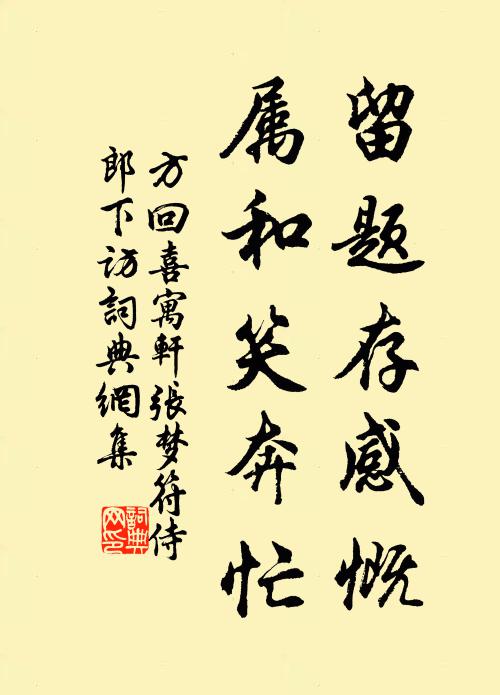 留题存感慨
属和笑奔忙
方回喜寓軒張梦符侍
郎下访詞典網集
詞典
网印